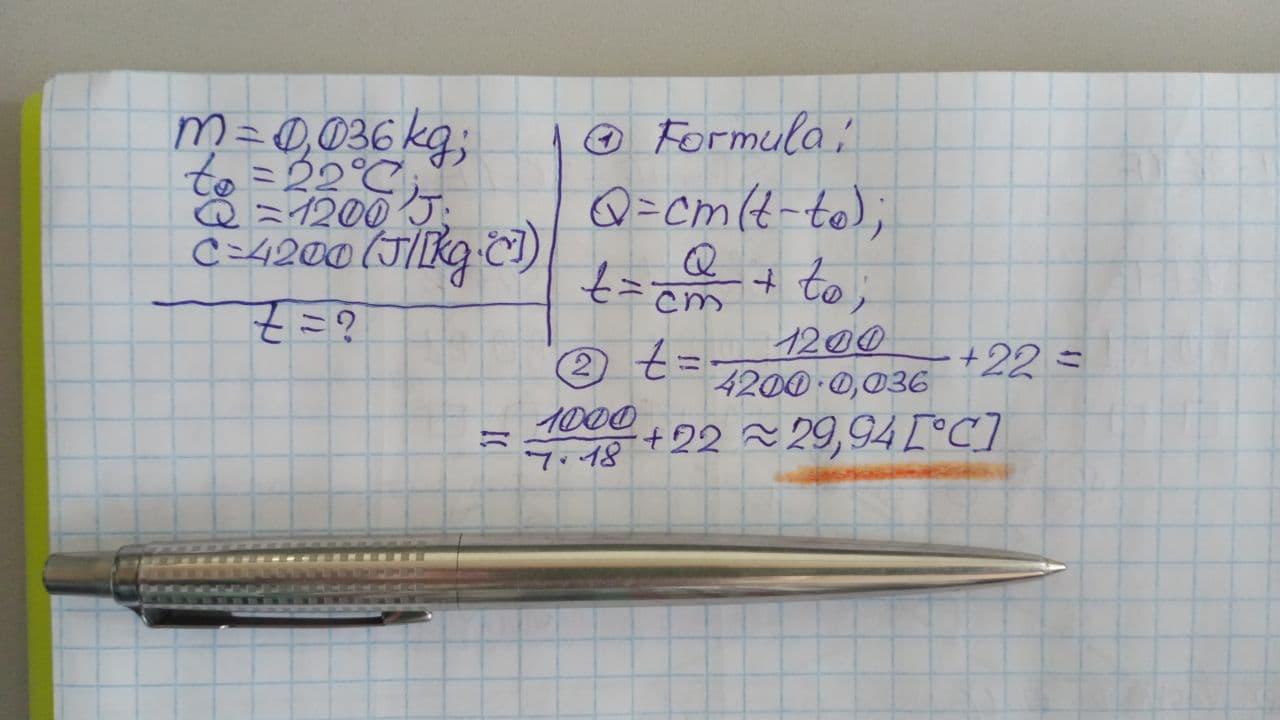 m = 0,036 kg;
t₀ = 22°C;
Q = 1200 J;
c = 4200 (J/[kg·°C])
t = ?
① Formula:
Q = cm(t - t₀);
t = Q/cm + t₀;
② t = 1200/4200·0,036 + 22 =
= 1000/7·18 + 22 ≈ 29,94 [°C]